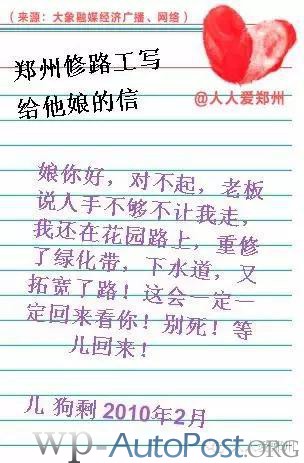 （来源：大象融媒经济广播、网络）
郑州修路工写
给他娘的信
@人人爱郑州
娘你好，对不起，老板
说人手不够不让我走，
我还在花园路上，重修
了绿化带，下水道，又
拓宽了路！这会一定一
定回来看你！别死！等
儿回来！
儿 狗剩 2010年2月
wp-AutoPost.ORG